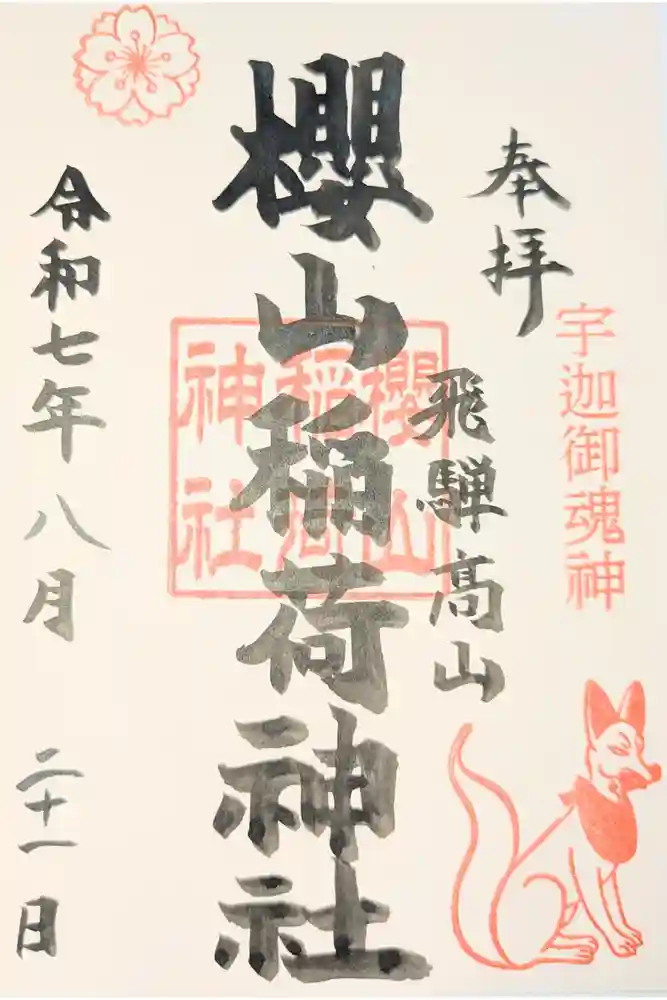 奉拝
宇迦御魂神
飛騨髙山
櫻山稲荷神社
櫻山
稲荷
神社
令和七年八月二十一日